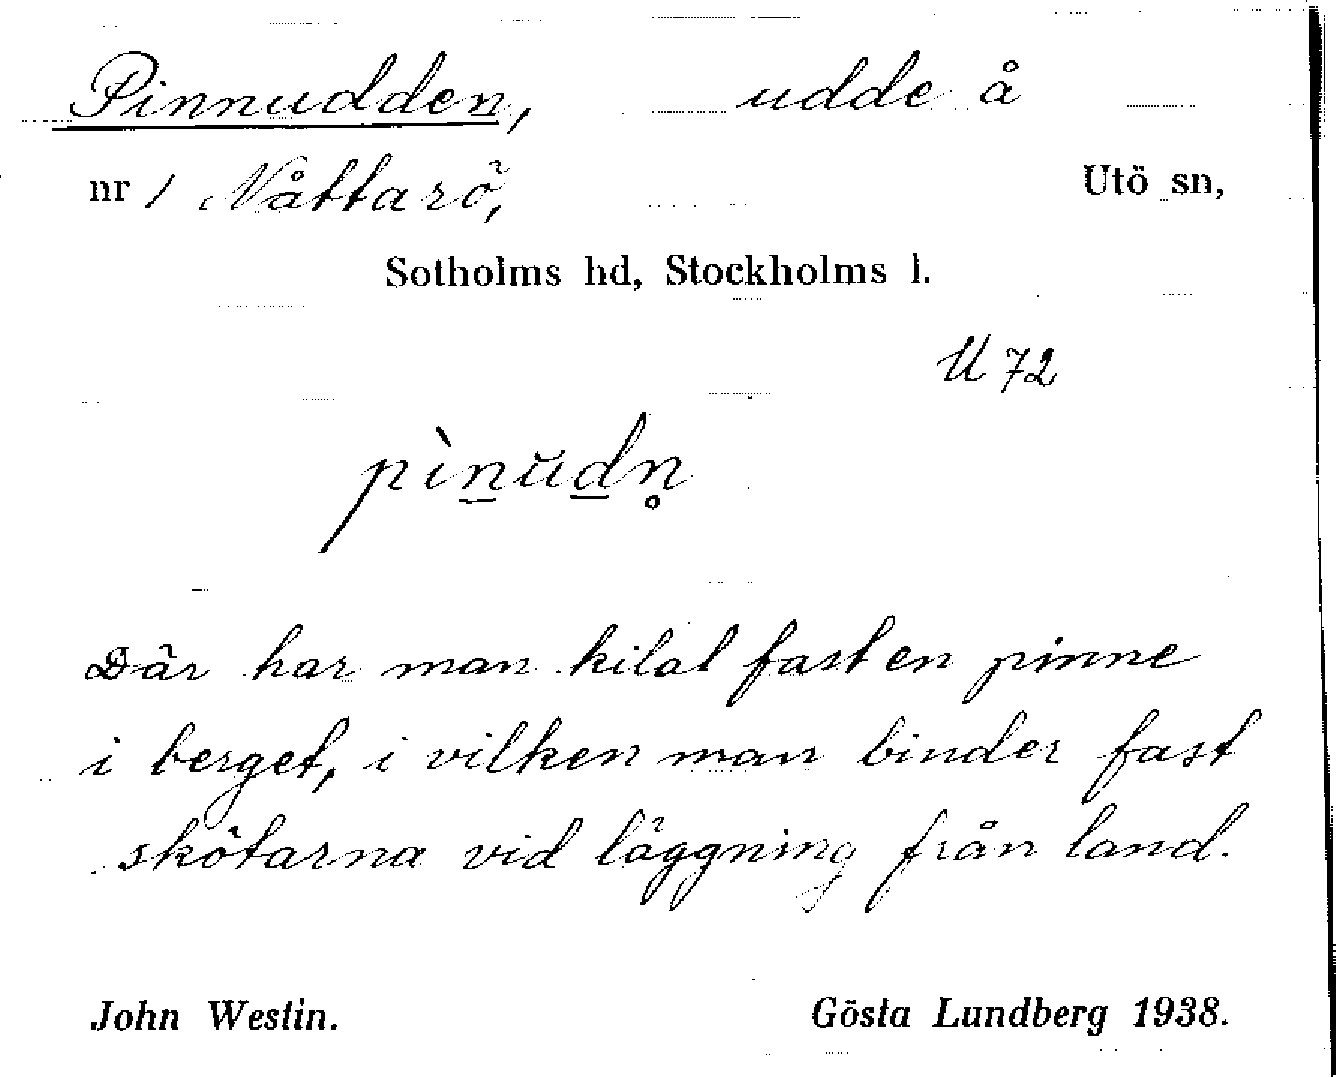 Pinnudden, udde å
nr 1 Nåttarö, Utö sn,
Sotholms hd, Stockholms l.
U 72
pìn̲ŭd̲n̥
Där har man kilat fast en pinne
i berget, i vilken man binder fast
skötarna vid läggning från land.
John Westin. Gösta Lundberg 1938.